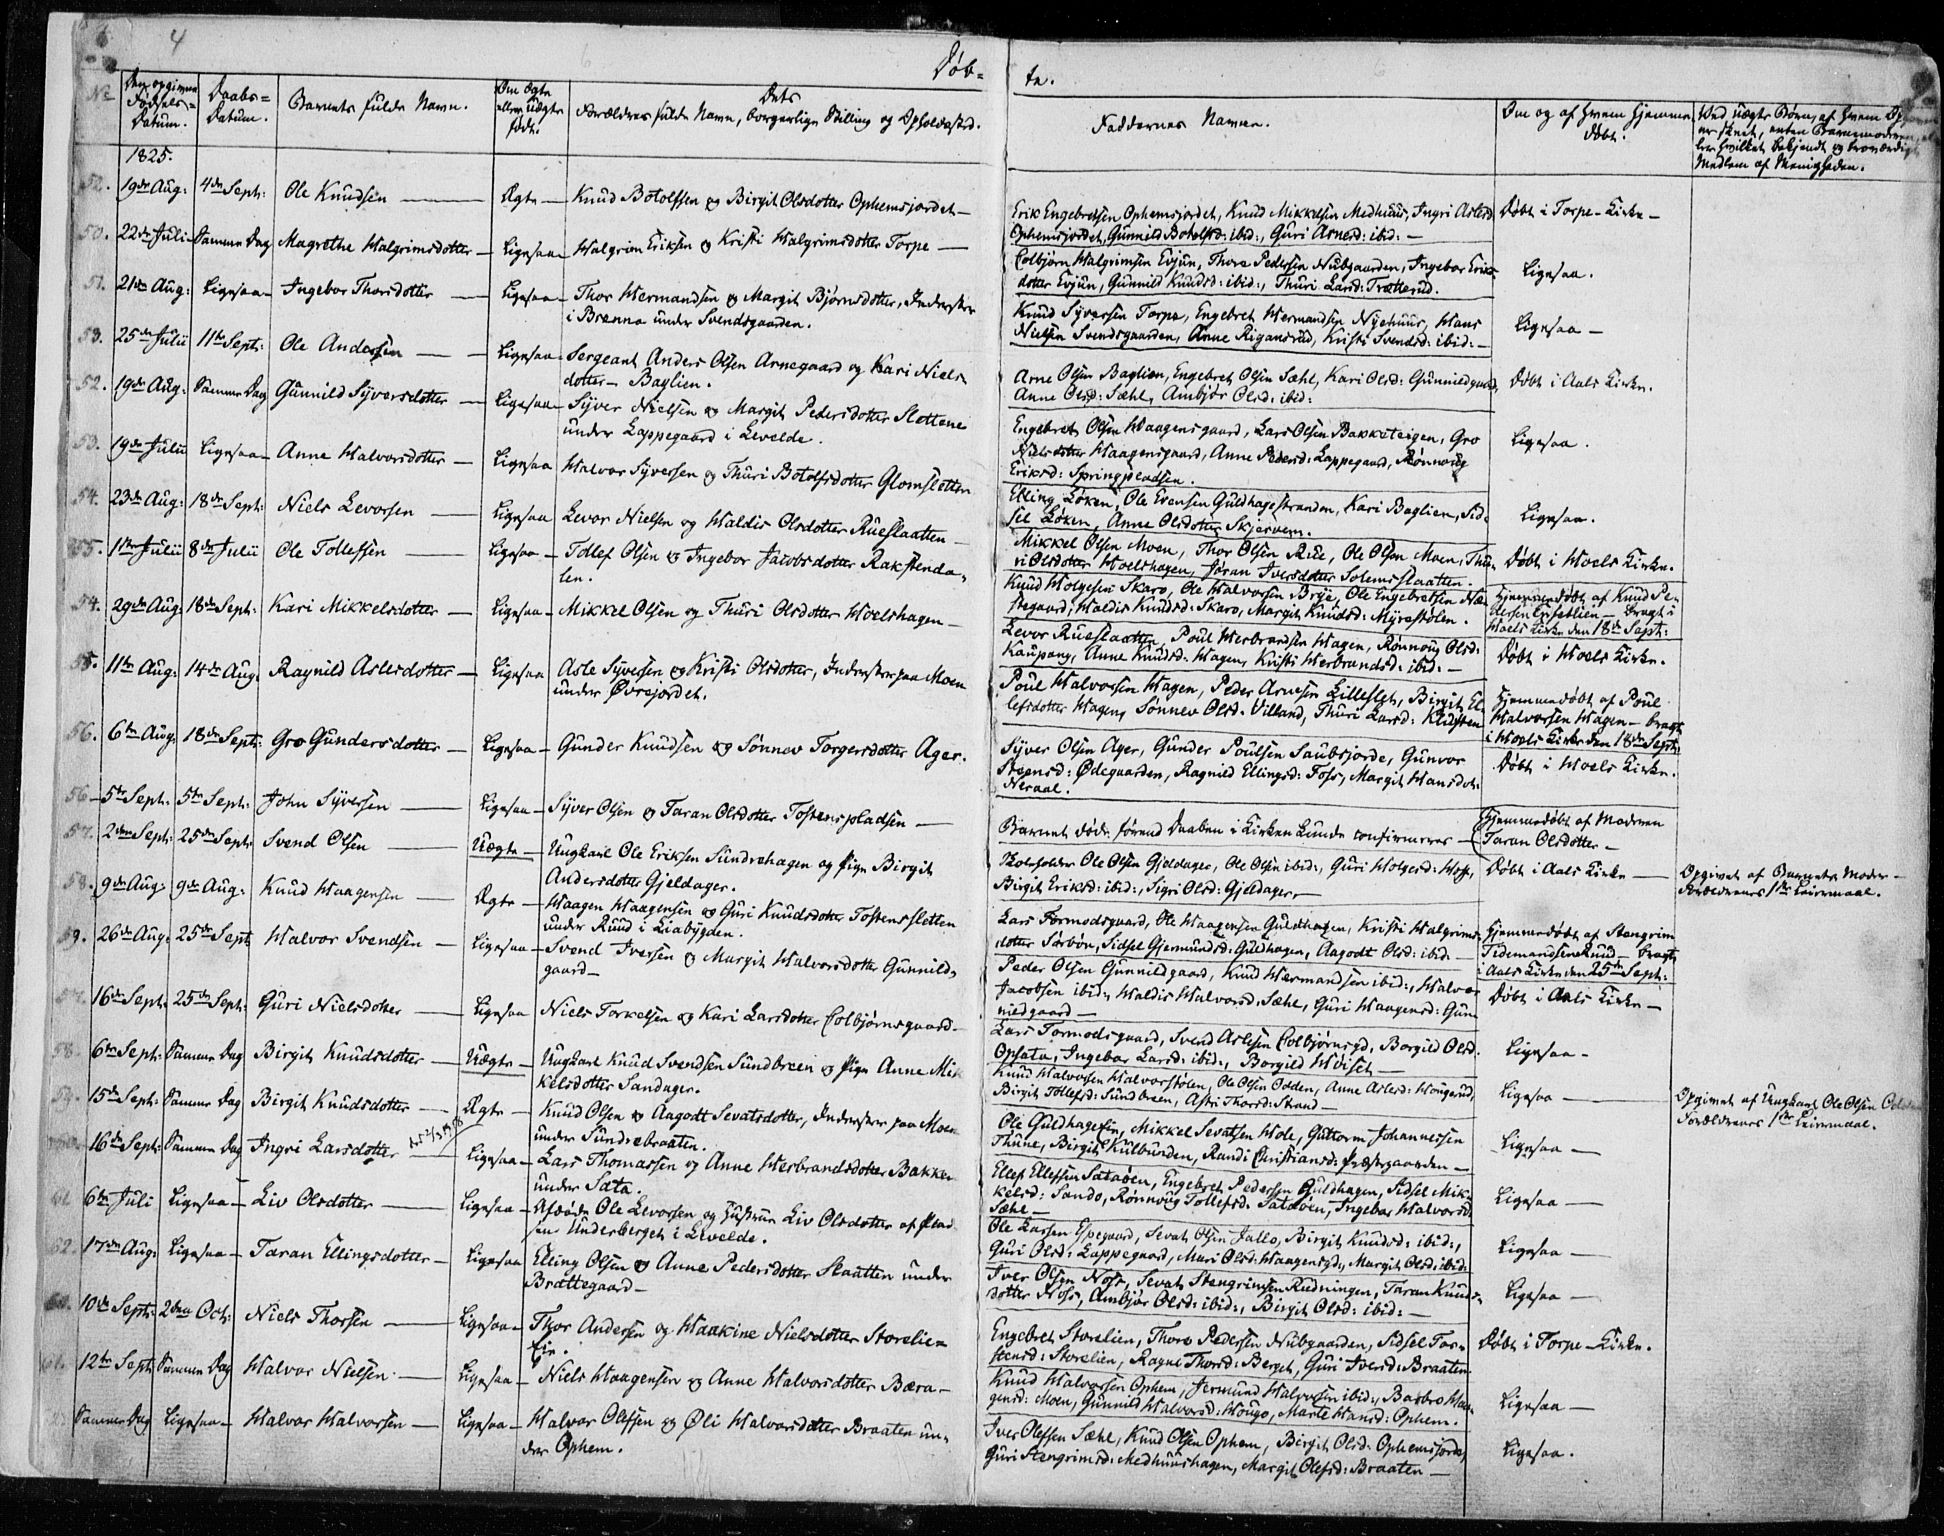 4
Døb-
te.
No
Den opgivne Fødsels-Datum.
Daabs-Datum.
Barnets fulde Navn.
Om Ægte eller Uægte født.
Dets Forældres fulde Navn, borgerlige Stilling og Opholdssted.
Faddernes Navne.
Om og af hvem hjemme døbt.
Ved uægte Børn, af hvem
er skeet, enten Barnemoderen,
hvilket bekjendt og troværdigt
Medlem af Menigheden.
1825.
52. 19de Aug: 4de Sept: Ole Knudsen — Ægte — Knud Botolfsen og Birgit Olsdotter Ophemsjordet —
Erik Engebretsen Ophemsjordet, Knud Mikkelsen Medhuus, Ingri Aslesd: Døbt i Torpe-Kirke —
Ophemsjordet, Gunnild Botolfsd: ibid:, Guri Arnesd: ibid: —
50. 22de Juli Samme Dag Magrethe Halgrimsdotter — Ligesaa — Halgrim Eriksen og Kristi Halgrimsdotter Torpe —
Colbjørn Halgrimsen Evjun, Thore Pedersen Nubgaarden, Ingebor Eriks- Ligesaa.
dotter Evjun, Gunnild Knudsd: ibid:, Thuri Larsd: Trætterud.
51. 21de Aug: Ligesaa — Ingebor Thorsdotter — Ligesaa — Thor Hermandsen og Margit Bjørnsdotter, Inderster
i Brenna under Svendsgaarden.
Knud Syversen Torpe, Engebret Hermandsen Nyehuus, Hans Ligesaa —
Nielsen Svendsgaarden, Anne Rigansrud, Kristi Svendsd: ibid: —
53. 25de Julii 11te Sept: Ole Andersen — Ligesaa — Sergeant Anders Olsen Arnegaard og Kari Niels-
dotter — Baglien.
Arne Olsen Baglien, Engebret Olsen Sæhl, Kari Olsd: Gunnildgaard, Døbt i Aals Kirke.
Anne Olsd: Sæhl, Ambjør Olsd: ibid:
52. 19de Aug: Samme Dag Gunnild Syversdotter — Ligesaa — Syver Nielsen og Margit Pedersdotter Slettene
under Lappegaard i Levelde.
Engebret Olsen Haagensgaard, Lars Olsen Bakketeigen, Gro Ligesaa.
Nielsdotter Haagensgaard, Anne Pedersd: Lappegaard, Rønnoug
Eriksd: Springpladsen.
53. 19de Julii Ligesaa — Anne Halvorsdotter — Ligesaa Halvor Syversen og Thuri Botolfsdotter Glomsletten
Elling Løken, Ole Evensen Guldhagestranden, Kari Baglien, Sid- Ligesaa.
sel Løken, Anne Olsdotter Skjervem.
54. 23de Aug: 18de Sept: Niels Levorsen — Ligesaa Levor Nielsen og Haldis Olsdotter Rueslaatten —
Mikkel Olsen Moen, Thor Olsen Rue, Ole Olsen Moen, Thu- Døbt i Hoels Kirke.
ri Olsdotter Hoelshagen, Jøran Iversdotter Solemsslaatten.
55. 1ste Julii 8de Julii Ole Tollefsen — Ligesaa — Tollef Olsen og Ingebor Jacobsdotter Rakstenda-
len.
Knud Holgesen Skaro, Ole Halvorsen Brye, Ole Engebretsen Næ- Hjemmedøbt af Knud Pe-
stegaard, Haldis Knudsd: Skaro, Margit Knudsd: Myrestølen. dersen — bragt i
Hoels Kirke den 18de Sept:
54. 29de Aug 18de Sept: Kari Mikkelsdotter — Ligesaa — Mikkel Olsen og Thuri Olsdotter Hoelshagen —
Levor Rueslaatten, Poul Herbrandsen Hagen, Rønnoug Olsd: Døbt i Hoels Kirke.
Kaupang, Anne Knudsd: Hagen, Kristi Herbrandsd: ibid: —
55. 11te Aug: 14de Aug: Ragnild Aslesdotter — Ligesaa Asle Syvesen og Kristi Olsdotter, Inderster paa Moen
under Øvrejordet.
Poul Halvorsen Hagen, Peder Arnesen Lilleslet, Birgit El- Hjemmedøbt af Poul
lefsdotter Hagen, Sønnev Olsd. Villand, Thuri Larsd: Halvorsen Hagen — bragt
i Hoels Kirke den 18de Sept:
56. 6te Aug: 18de Sept: Gro Gundersdotter — Ligesaa — Gunder Knudsen og Sønnev Torgersdotter Ager.
Syver Olsen Ager, Gunder Poulsen Saubsjorde, Gunvor Døbt i Hoels Kirke.
Steensd: Ødegaarden, Ragnild Ellingsd: Foss, Margit Hansdot:
Neraal.
56 — 5te Sept: 5te Sept: John Syversen — Ligesaa — Syver Olsen og Taran Olsdotter Tostenspladsen —
Barnet døde førend Daaben i Kirken kunde confirmeres — Hjemmedøbt af Moderen
Taran Olsdotter —
57. 2den Sept: 25de Sept: Svend Olsen — Uægte — Ungkarl Ole Eriksen Sundrehagen og Pige Birgit
Andersdotter Gjeldager.
Ole Olsen Gjeldager, Ole Olsen ibid:, Guri Holgersd: Døbt i Aals Kirke — Opgivet af Barnets Moder —
Birgit Eriksd: ibid:, Sigri Olsd: Gjeldager — Forældrenes 1ste Leiermaal.
58. 9de Aug: 9de Aug: Knud Haagensen — Ægte — Haagen Haagensen og Guri Knudsdotter Tostensletten
under Ruud i Liabygden.
Lars Tormodsgaard, Ole Haagensen Guldhagen, Kristi Halgrims- Hjemmedøbt af Stengrim
dotter Sørbøn, Sidsel Gjermundsd: Guldhagen, Aagodt Olsd: ibid: — Tidemandsen Ruud — bragt
i Aals Kirke den 25de Sept:
59. 26de Aug: 25de Sept: Halvor Svendsen — Ligesaa — Svend Iversen og Margit Halvorsdotter Gunnild-
gaard —
Peder Olsen Gunnildgaard, Knud Hermandsen ibid:, Halvor Døbt i Aals Kirke —
Jacobsen ibid:, Haldis Halvorsd: Sæhl, Guri Haagensd: Gun-
nildgaard —
57. 16de Sept: 25de Sept: Guri Nielsdotter — Ligesaa Niels Torkelsen og Kari Larsdotter Colbjørnsgaard —
Lars Tormodsgaard, Svend Aslesen Colbjørnsgd, Borgild Olsd. Ligesaa —
Opsata, Ingebor Larsd: ibid:, Borgild Høiset —
58. 6te Sept: Samme Dag Birgit Knudsdotter — Uægte — Ungkarl Knud Svendsen Sundbreen og Pige Anne Mik-
kelsdotter Sandager.
Knud Halvorsen Halvorstølen, Ole Olsen Odden, Anne Aslesd: Hougerud, Ligesaa — Opgivet af Ungkarl Ole Olsen
Birgit Tollefsd: Sundbreen, Astri Thorsd: Strand — Forældrenes 1ste Leiermaal.
59. 15de Sept: Samme Dag Birgit Knudsdotter — Ægte — Knud Olsen og Aagodt Sevatsdotter, Inderster paa Moen
under Sundrebraaten.
Ole Guldhagen, Mikkel Sevatsen Hole, Guttorm Johannessen Ligesaa —
Thune, Birgit Kulbunden, Randi Christiansd: Præstegaarden —
16de Sept: Samme Dag Ingri Larsdotter — Ligesaa — Lars Thomassen og Anne Herbrandsdotter Bakken
under Sata.
Ellef Ellefsen Satøen, Engebret Pedersen Guldhagen, Sidsel Mik- Ligesaa —
kelsd: Sando, Rønnoug Tollefsd: Satøen, Ingebor Halvorsd
Sæhl —
61. 6te Juli Ligesaa — Liv Olsdotter — Ligesaa — Afdøde Ole Levorsen og Hustrue Liv Olsdotter af Plad-
sen Underberget i Levelde.
Ole Larsen Espegaard, Sevat Olsen Jallo, Birgit Knudsd: ibid:, Ligesaa —
Guri Olsd: Lappegaard, Mari Olsd: Haagensgd:, Margit Olsd: ibid:
62. 17de Aug: Ligesaa — Taran Ellingsdotter — Ligesaa Elling Olsen og Anne Pedersdotter Slaatten under
Brattegaard —
Iver Olsen Noss, Sevat Stengrimsen Rudningen, Taran Knuds- Ligesaa —
dotter Noss, Ambjør Olsd: ibid:, Birgit Olsd: ibid: —
60. 10de Sept: 2den Oct: Niels Thorsen — Ligesaa — Thor Andersen og Haakine Nielsdotter Storelie-
Eie.
Engebret Storelien, Thore Pedersen Nubgaarden, Sidsel Tor- Døbt i Torpe-Kirke.
stensd: Storelien, Ragne Thorsd: Berget, Guri Iversd: Braaten
61. 12te Sept: Samme Dag Halvor Nielsen — Ligesaa — Niels Haagensen og Anne Halvorsdotter Bæra —
Knud Halvorsen Ophem, Jermund Halvorsen ibid:, Barbro Haa- Ligesaa —
gensd: Moen, Gunnild Halvorsd: Hougo, Marte Hansd: Ophem.
Samme Dag Ligesaa — Halvor Halvorsen — Ligesaa — Halvor Olefsen og Øli Halvorsdotter Braaten un-
der Ophem.
Iver Olefsen Sæhl, Knud Olsen Ophem, Birgit Olsd: Ophemsjorde, Ligesaa.
Guri Stengrimsd: Medhuushagen, Margit Olefsd: Braaten —